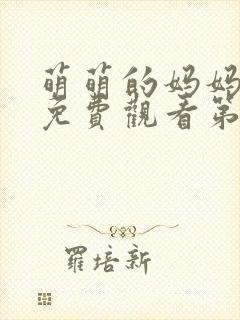 萌萌的妈妈
免費觀看第
羅培新